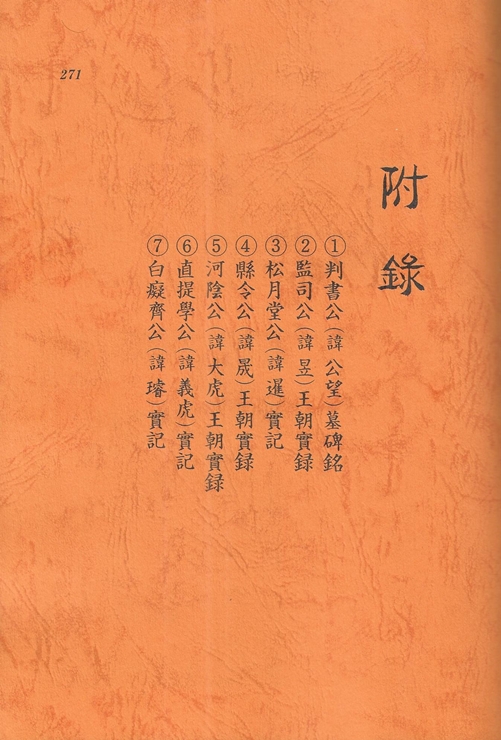 271
附錄
①判書公(諱 公望)墓碑銘
②監司公(諱 昱)王朝實録
③松月堂公(諱 暹)實記
④縣令公(諱 晟)王朝實録
⑤河陰公(諱 大虎)王朝實録
⑥直提學公(諱 義虎)實記
⑦白癡齊公(諱 璿)實記